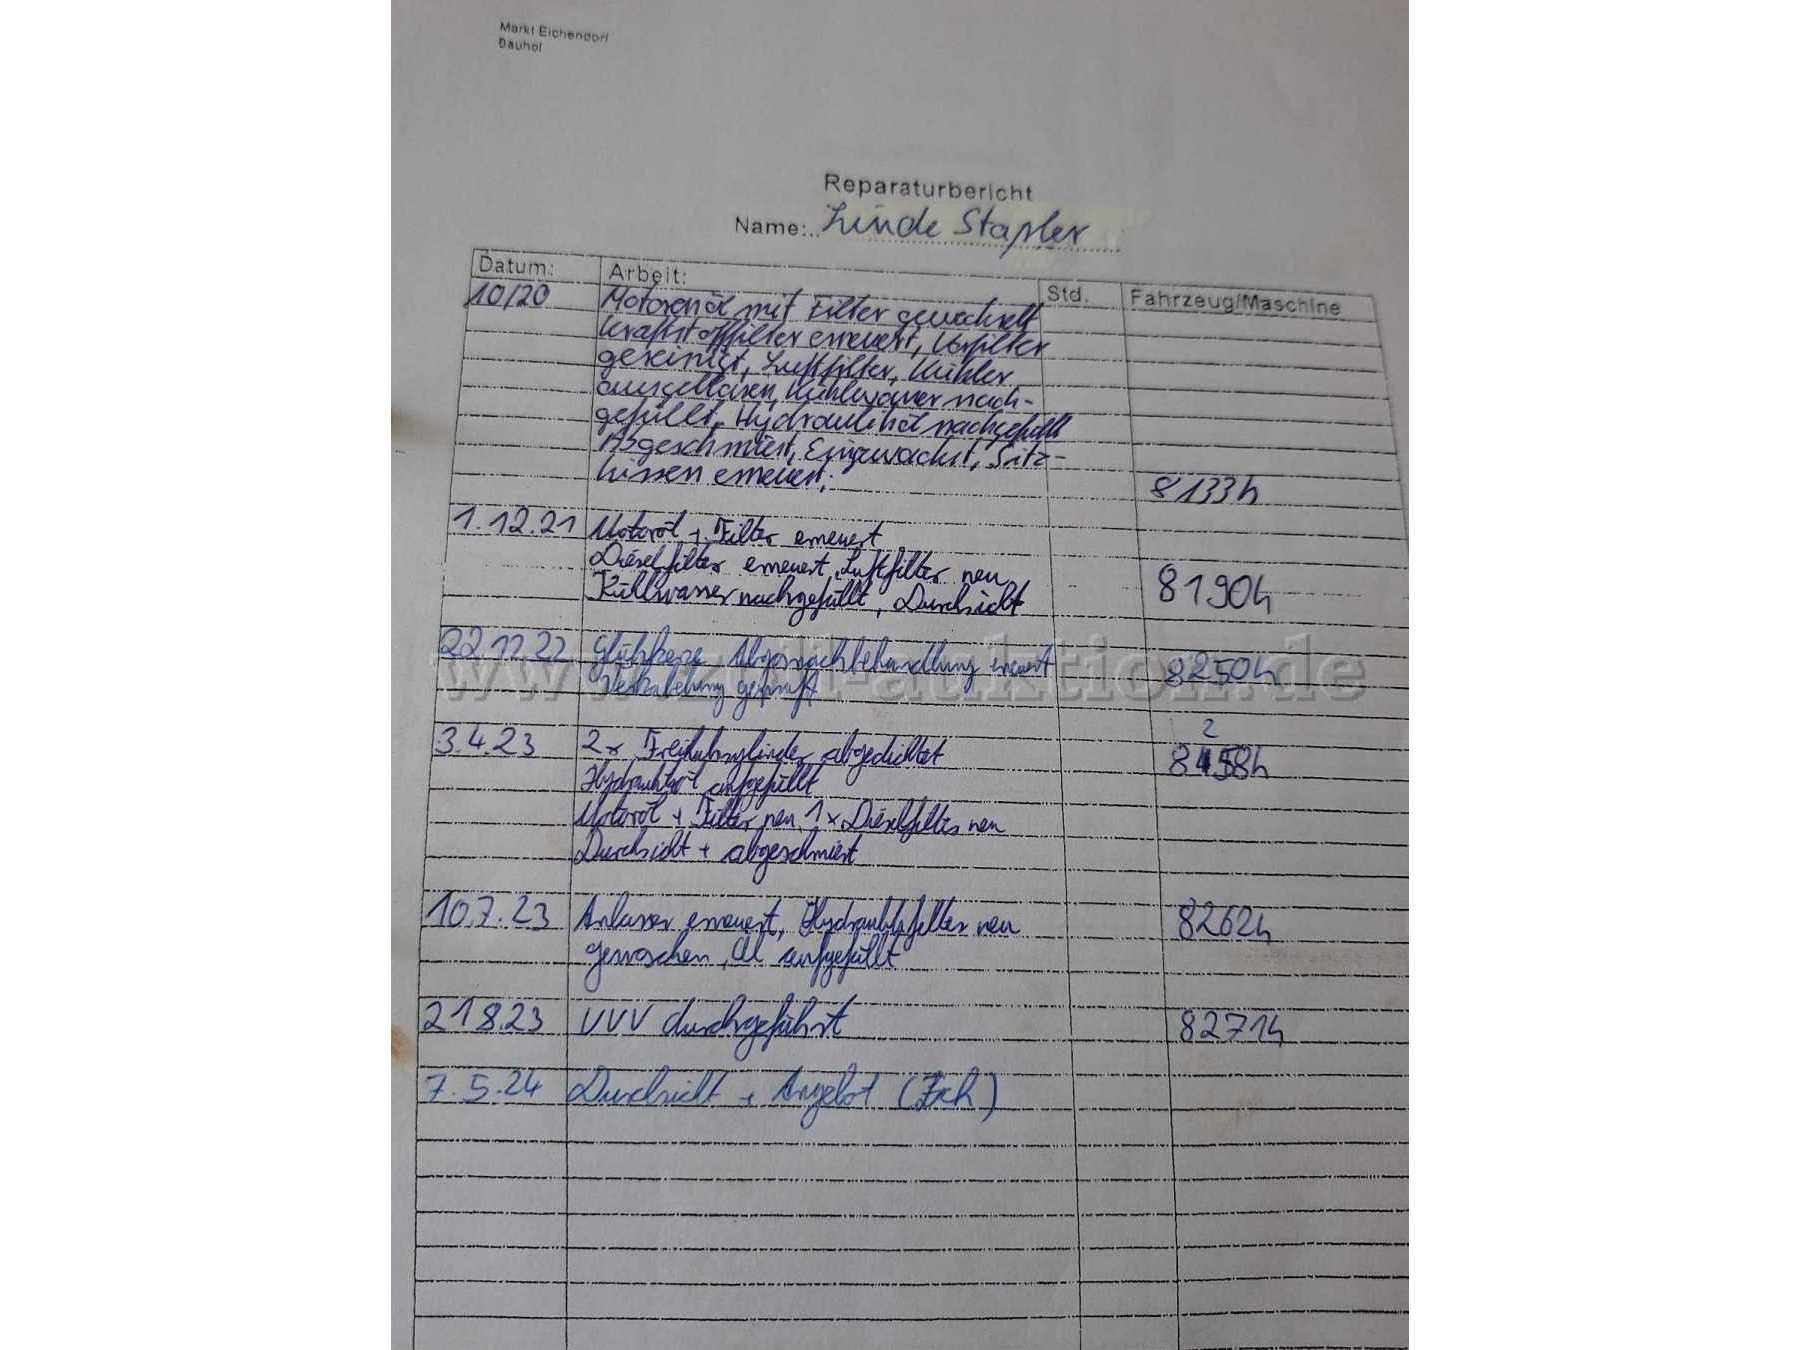 Markt Eichendorf
Bauhof
Reparaturbericht
Name: Linde Stapler
Datum: Arbeit: Std. Fahrzeug/Maschine
10/20 Motorenöl mit Filter gewechselt
Kraftstofffilter erneuert, Vorfilter
gereinigt, Luftfilter, Kühler
ausgeblasen, Kühlwasser nach-
gefüllt, Hydrauliköl nachgefüllt
Abgeschmiert, Eingewachst, Sitz-
kissen erneuert. 8133h
1.12.21 Motoröl + Filter erneuert
Dieselfilter erneuert, Luftfilter neu
Kühlwasser nachgefüllt, Durchsicht 8190h
22.12.22 Glühkerze Abgasnachbehandlung erneuert 8250h
Verkabelung geprüft
www.zoll-auktion.de
3.4.23 2x Freihubzylinder abgedichtet 8258h
Hydrauliköl aufgefüllt
Motoröl + Filter neu 1x Dieselfilter neu
Durchsicht + abgeschmiert
10.7.23 Anlasser erneuert, Hydraulikfilter neu 8262h
gewaschen, Öl aufgefüllt
21.8.23 UVV durchgeführt 8271h
7.5.24 Durchsicht + Angebot